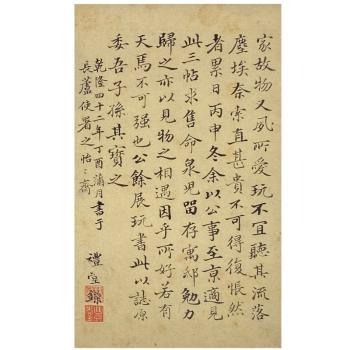 家故物又夙所愛玩不宜聽其流落
塵埃奈索直甚貴不可得復悵然
者累日丙申冬余以公事至京適見
此三帖求售命泉兒留存寓邸勉力
歸之亦以見物之相遇因乎所好若有
天焉不可强也公餘展玩書此以誌原
委吾子孫其寶之
乾隆四十二年丁酉蒲月書于
長蘆使署之怡怡齋
禮堂